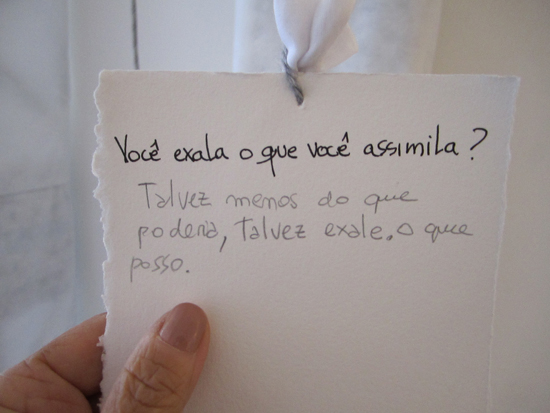 Você exala o que você assimila?
Talvez menos do que
poderia, Talvez exale. o que
posso.